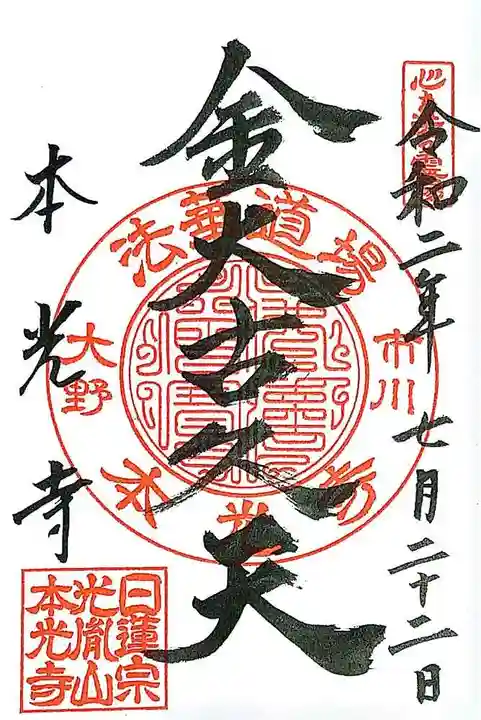 令和二年七月二十二日
金大
本光寺
法華道場
市川
大野
本光寺
日蓮宗
光胤山
本光寺